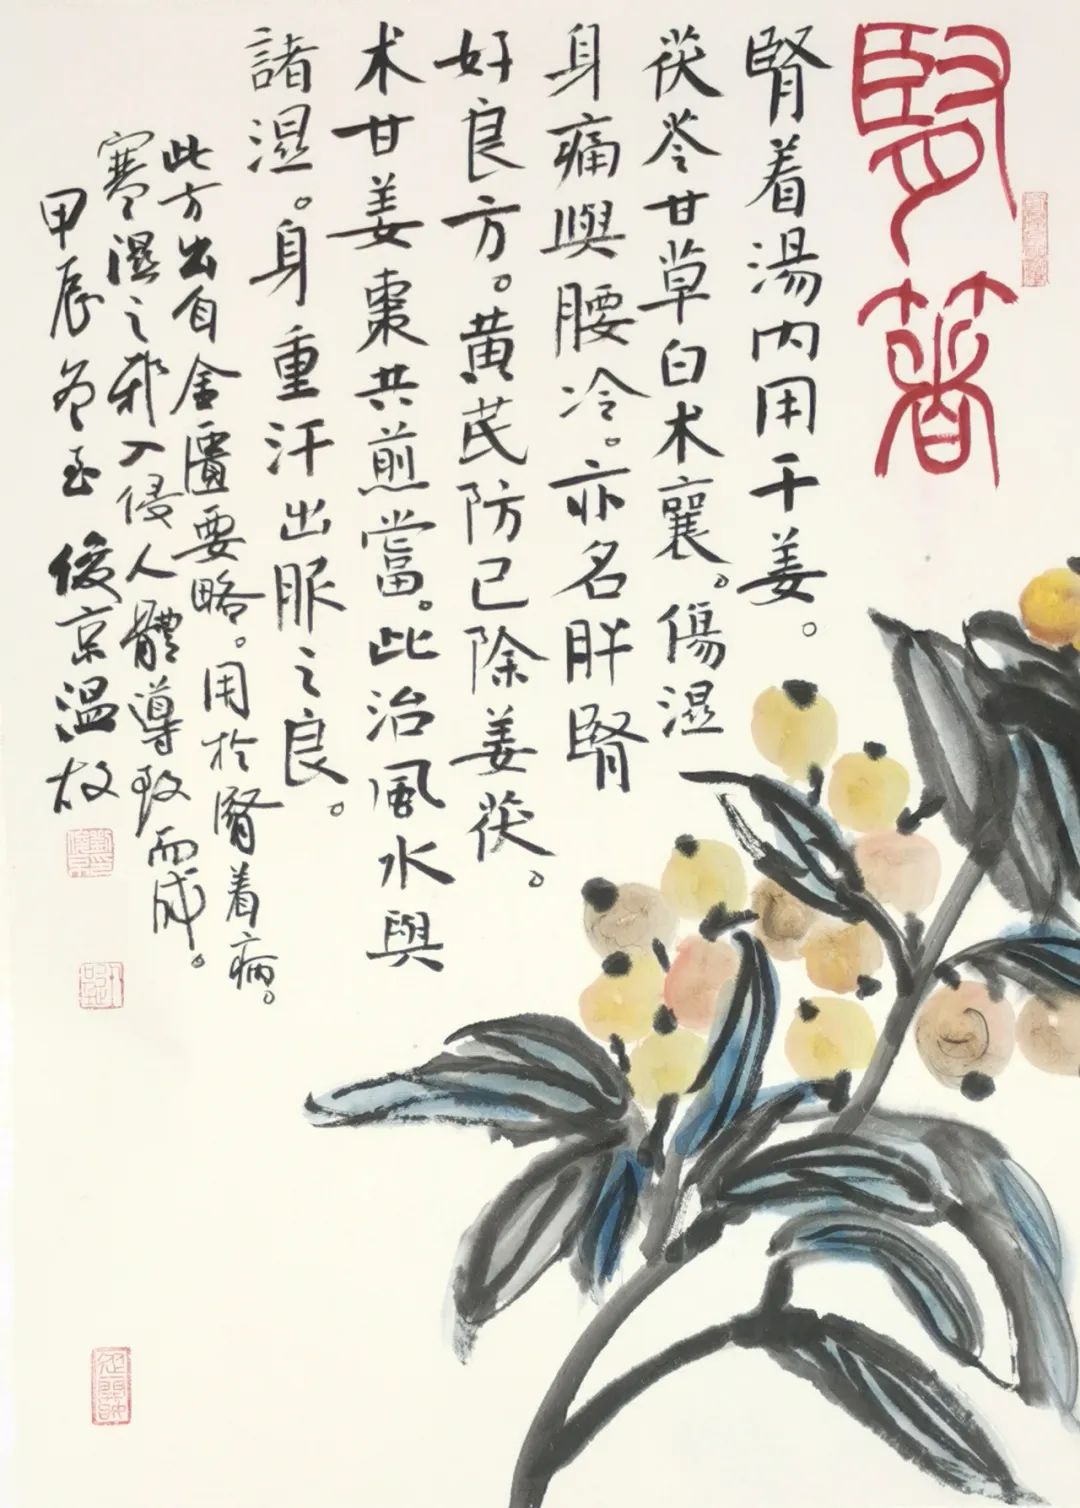 腎著
腎着湯内用干姜。
茯苓甘草白术襄。傷濕
身痛與腰冷。亦名胖腎
好良方。黄芪防已除姜茯。
术甘姜棗共煎嘗。此治風水與
諸濕。身重汗出服之良。
此方出自金匱要略。用於腎着病。
寒濕之邪入侵人體導致而成。
甲辰冬至 俊京温故